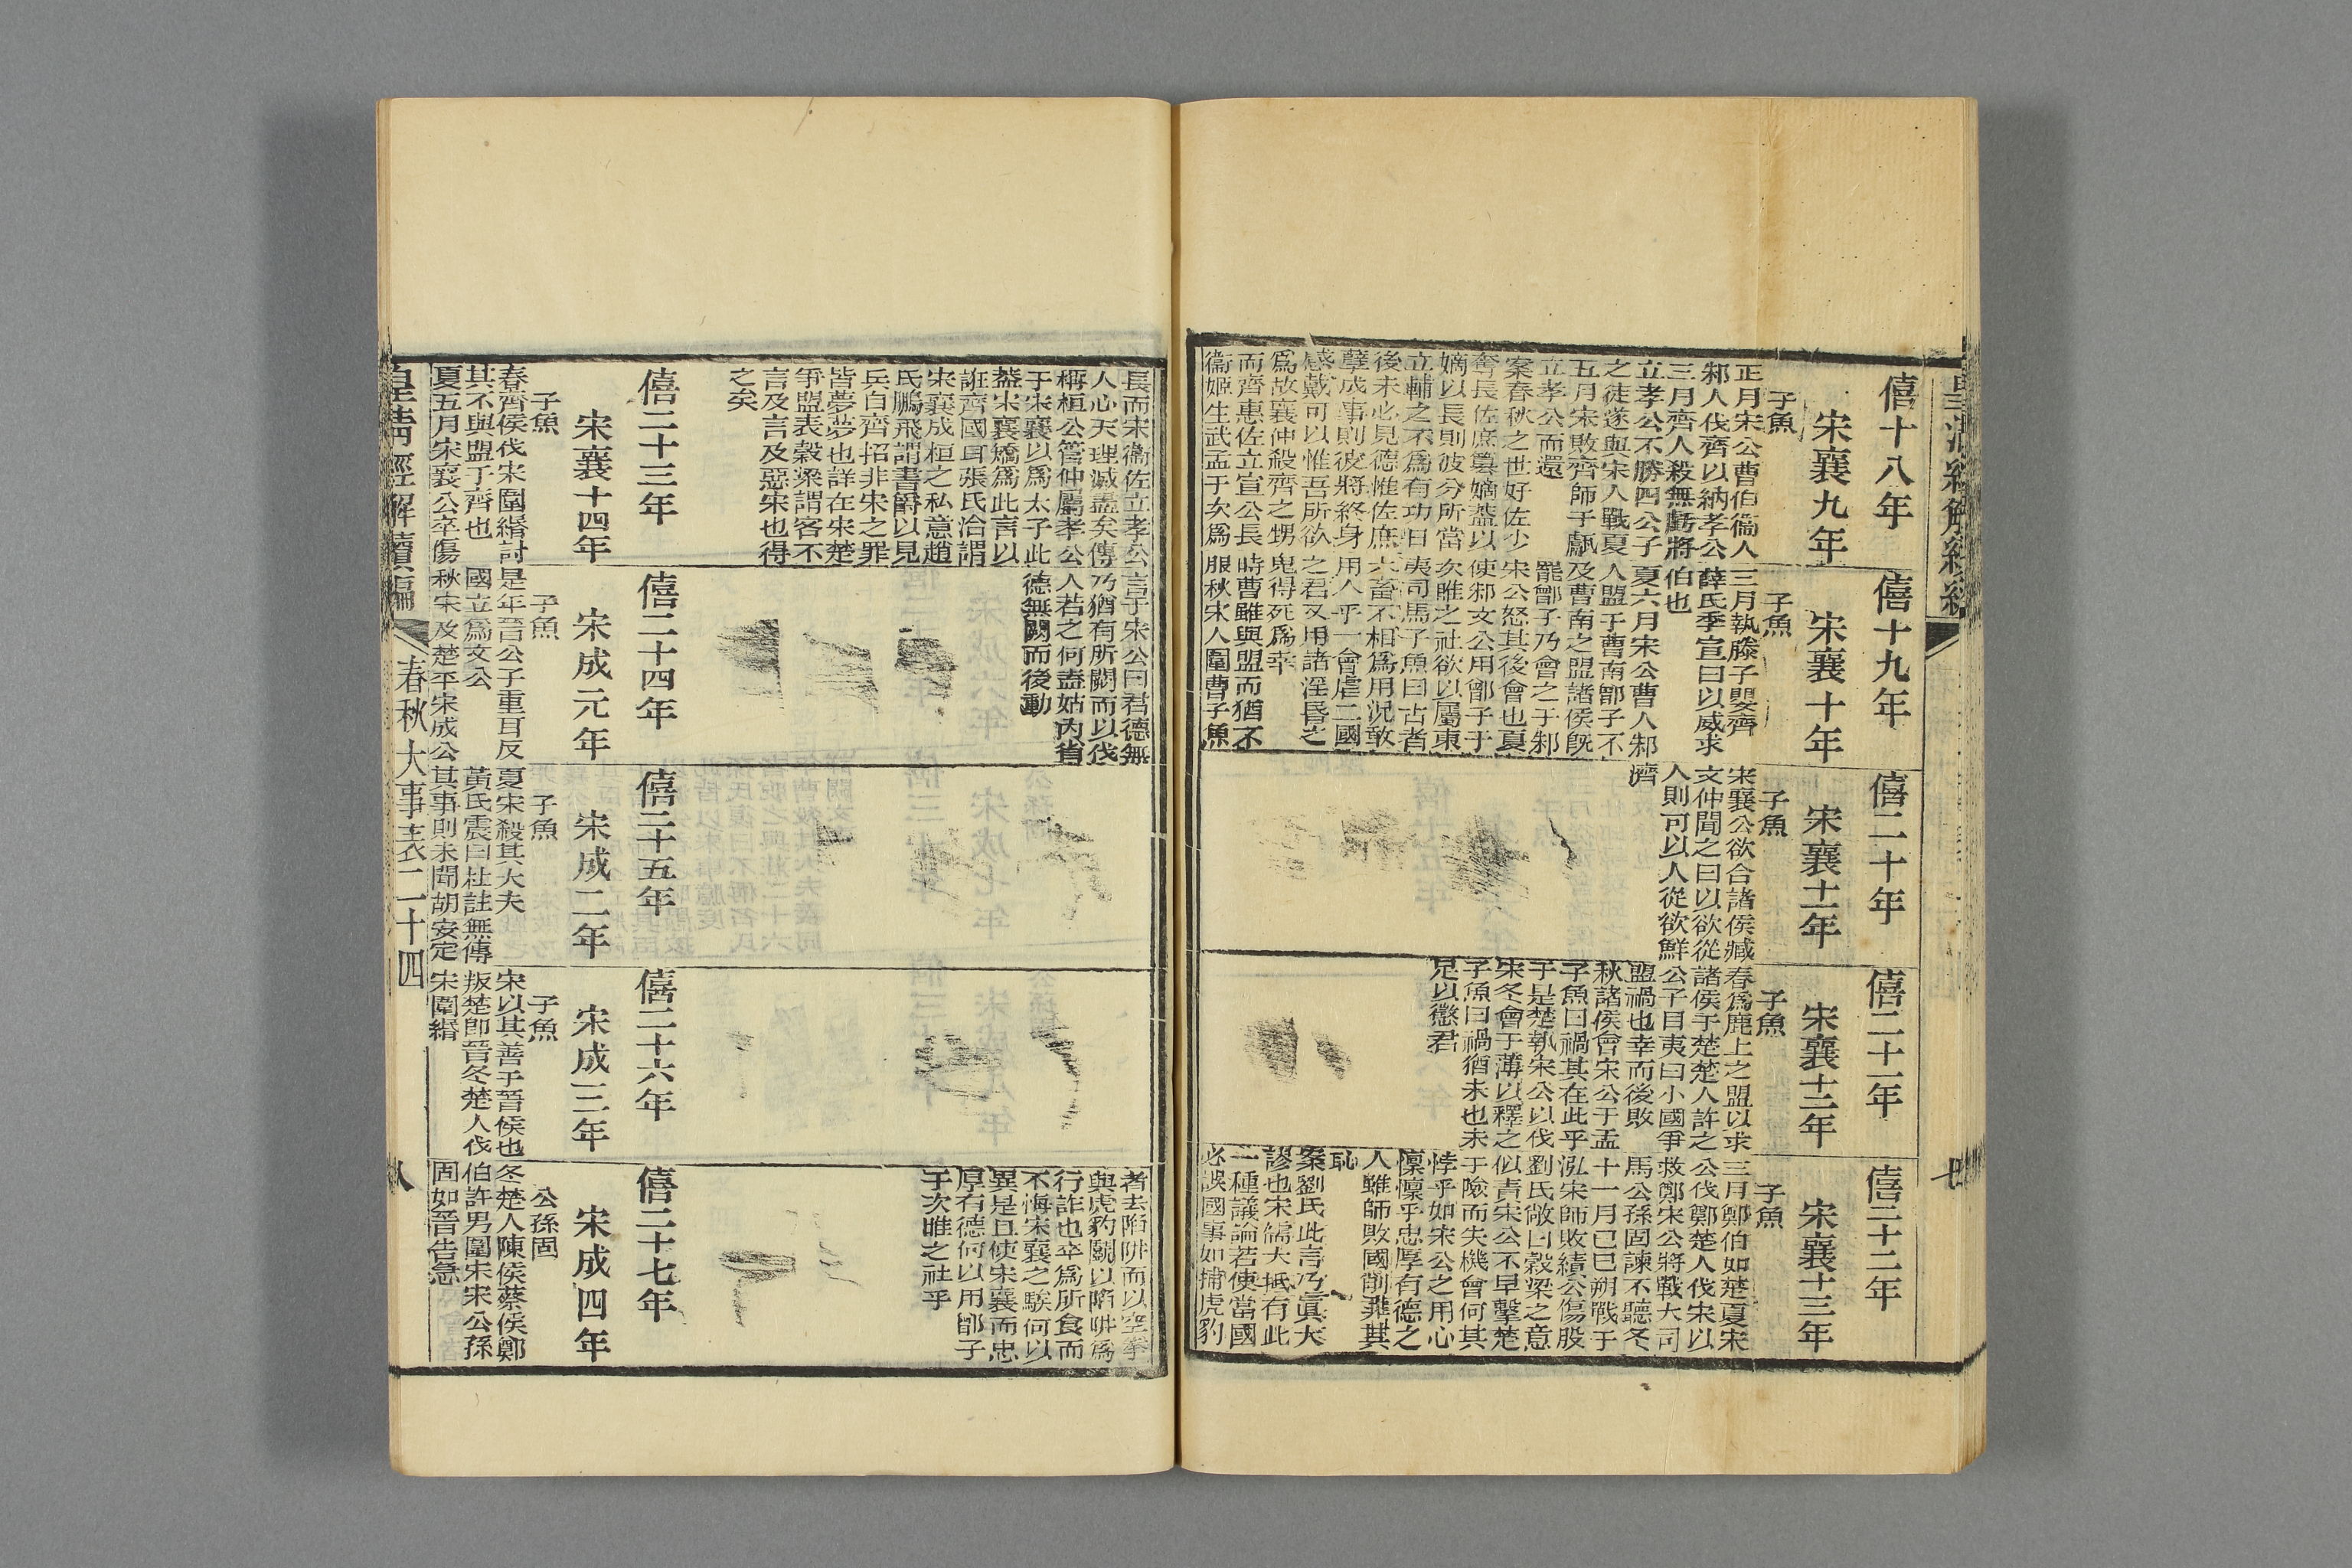 皇清經解續編
七
僖十八年
宋襄九年
子魚
正月宋公曹伯衞人
邾人伐齊以納孝公
三月齊人殺無虧將
立孝公不勝四公子
之徒遂與宋人戰夏
五月宋敗齊師于甗
立孝公而還
案春秋之世好佐少
奪長佐庶簒嫡蓋以
嫡以長則彼分所當
立輔之不爲有功日
後未必見德惟佐庶
孽成事則彼將終身
感戴可以惟吾所欲
爲故襄仲殺齊之甥
而齊惠佐立宣公長
衞姬生武孟于次爲
僖十九年
宋襄十年
子魚
三月執滕子嬰齊
薛氏季宣曰以威求
伯也
夏六月宋公曹人邾
人盟于曹南鄫子不
及曹南之盟諸侯旣
罷鄫子乃會之于邾
宋公怒其後會也夏
使邾文公用鄫子于
次睢之社欲以屬東
夷司馬子魚曰古者
六畜不相爲用況敢
用人乎一會虐二國
之君又用諸淫昏之
鬼得死爲幸
時曹雖與盟而猶不
服秋宋人圍曹子魚
僖二十年
宋襄十一年
子魚
宋襄公欲合諸侯臧
文仲聞之曰以欲從
人則可以人從欲鮮
濟
僖二十一年
宋襄十二年
子魚
春爲鹿上之盟以求
諸侯于楚楚人許之
公子目夷曰小國爭
盟禍也幸而後敗
秋諸侯會宋公于盂
子魚曰禍其在此乎
于是楚執宋公以伐
宋冬會于薄以釋之
子魚曰禍猶未也未
足以懲君
僖二十二年
宋襄十三年
子魚
三月鄭伯如楚夏宋
公伐鄭楚人伐宋以
救鄭宋公將戰大司
馬公孫固諫不聽冬
十一月己巳朔戰于
泓宋師敗績公傷股
劉氏敞曰穀梁之意
似責宋公不早擊楚
于險而失機會何其
悖乎如宋公之用心
懍懍乎忠厚有德之
人雖師敗國削非其
恥
案劉氏此言乃眞大
謬也宋儒大抵有此
一種議論若使當國
必誤國事如捕虎豹
長而宋襄佐立孝公
人心天理滅盡矣傳
稱桓公管仲屬孝公
于宋襄以爲太子此
蓋宋襄矯爲此言以
誑齊國耳張氏洽謂
宋襄成桓之私意趙
氏鵬飛謂書爵以見
兵自齊招非宋之罪
皆夢夢也詳在宋楚
爭盟表穀梁謂客不
言及言及惡宋也得
之矣
言于宋公曰君德無
乃猶有所闕而以伐
人若之何盍姑內省
德無闕而後動
者去陷阱而以空拳
與虎豹鬬以陷阱爲
行詐也卒爲所食而
不悔宋襄之騃何以
異是且使宋襄而忠
厚有德何以用鄫子
于次睢之社乎
僖二十三年
宋襄十四年
子魚
春齊侯伐宋圍緡討
其不與盟于齊也
夏五月宋襄公卒傷
僖二十四年
宋成元年
子魚
是年晉公子重耳反
國立爲文公
秋宋及楚平宋成公
僖二十五年
宋成二年
子魚
夏宋殺其大夫
黃氏震曰杜註無傳
其事則未聞胡安定
僖二十六年
宋成三年
子魚
宋以其善于晉侯也
叛楚卽晉冬楚人伐
宋圍緡
僖二十七年
宋成四年
公孫固
冬楚人陳侯蔡侯鄭
伯許男圍宋宋公孫
固如晉告急
皇清經解續編
春秋大事表二十四
八